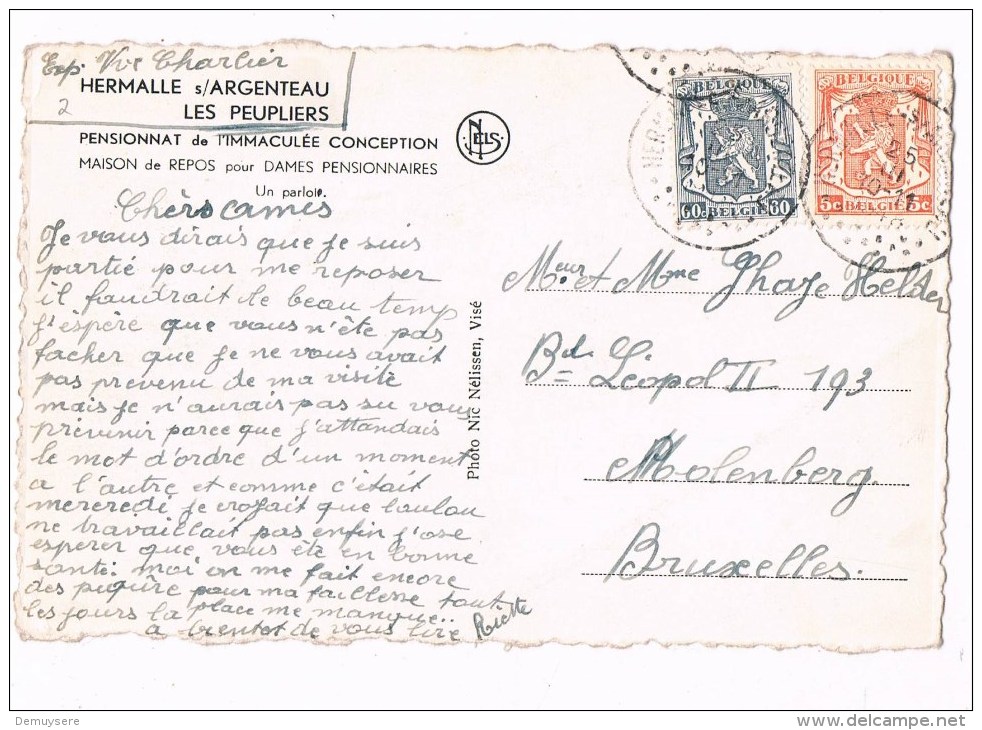 Exp Vve Charlier
2
HERMALLE s/ARGENTEAU
LES PEUPLIERS
PENSIONNAT de l'IMMACULÉE CONCEPTION
MAISON de REPOS pour DAMES PENSIONNAIRES
Un parloir.
NELS
Chèrs Camis
Je vous dirais que je suis
partié pour me reposer
il faudrait le beau temp
j'éspére que vous n'éte pas
facher que je ne vous avait
pas prevenu de ma visitè
mais je n'aurais pas su vous
prévenir parce que j'attandais
le mot d'ordre d'un moment
a l'autre et comme c'était
mercredi je crojait que loulou
ne travaillait pas enfin j'ose
esperer que vous éte en bonne
santé: moi on me fait encore
des piqûre pour ma faillesse tout
les jours la place me manque..
a bientot de vous lire
Photo Nic Nélissen, Visé
BELGIQUE
60c 60
BELGIE
BELGIQUE
5c BELGIE 5c
25
Meur et Mme Ghaye Helder
Bd Léopol II 193
Molenberg.
Bruxelles.
Demuysere
delcampe.net